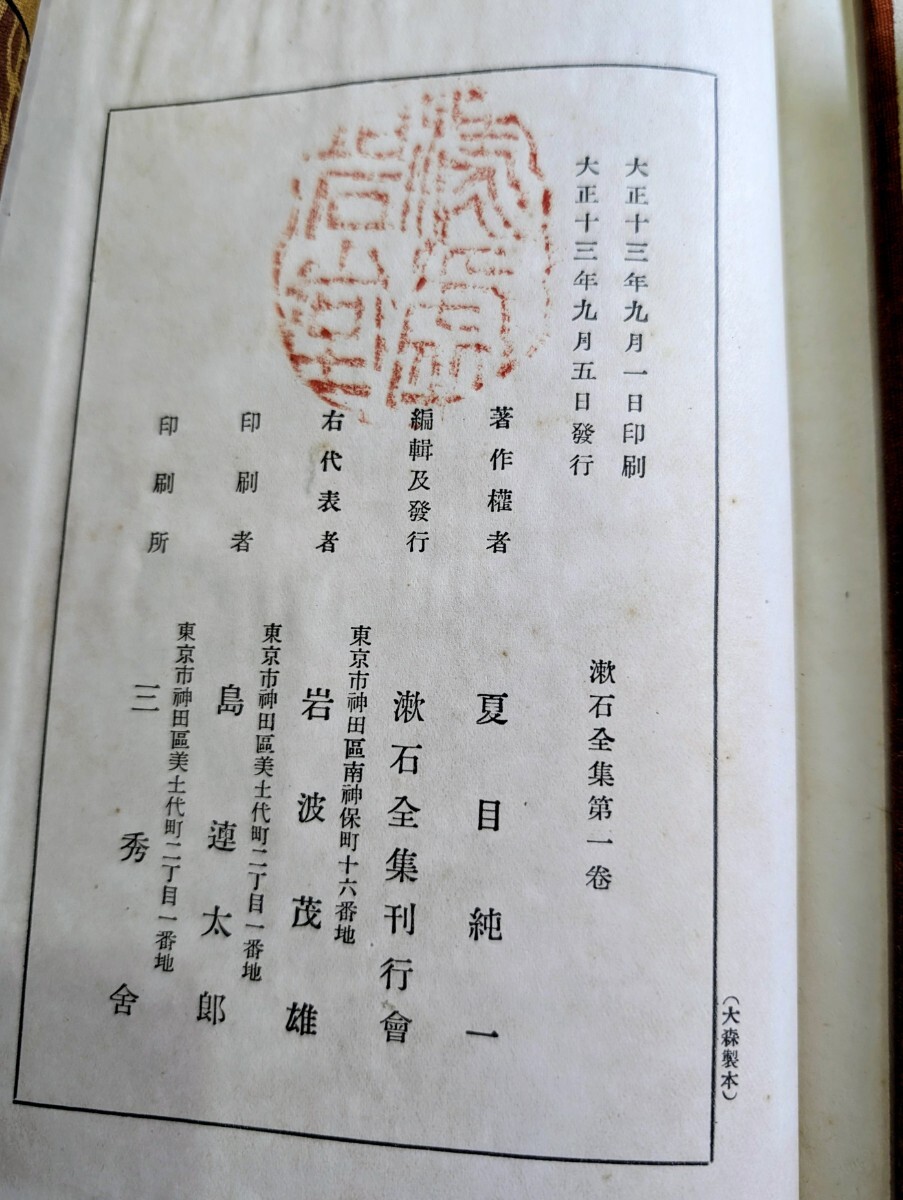 大正十三年九月一日印刷
大正十三年九月五日發行
漱石全集第一卷
著作權者
夏目純一
編輯及發行
漱石全集刊行會
東京市神田區南神保町十六番地
右代表者
岩波茂雄
東京市神田區美土代町二丁目一番地
印刷者
島連太郎
東京市神田區美土代町二丁目一番地
印刷所
三秀舍
（大森製本）